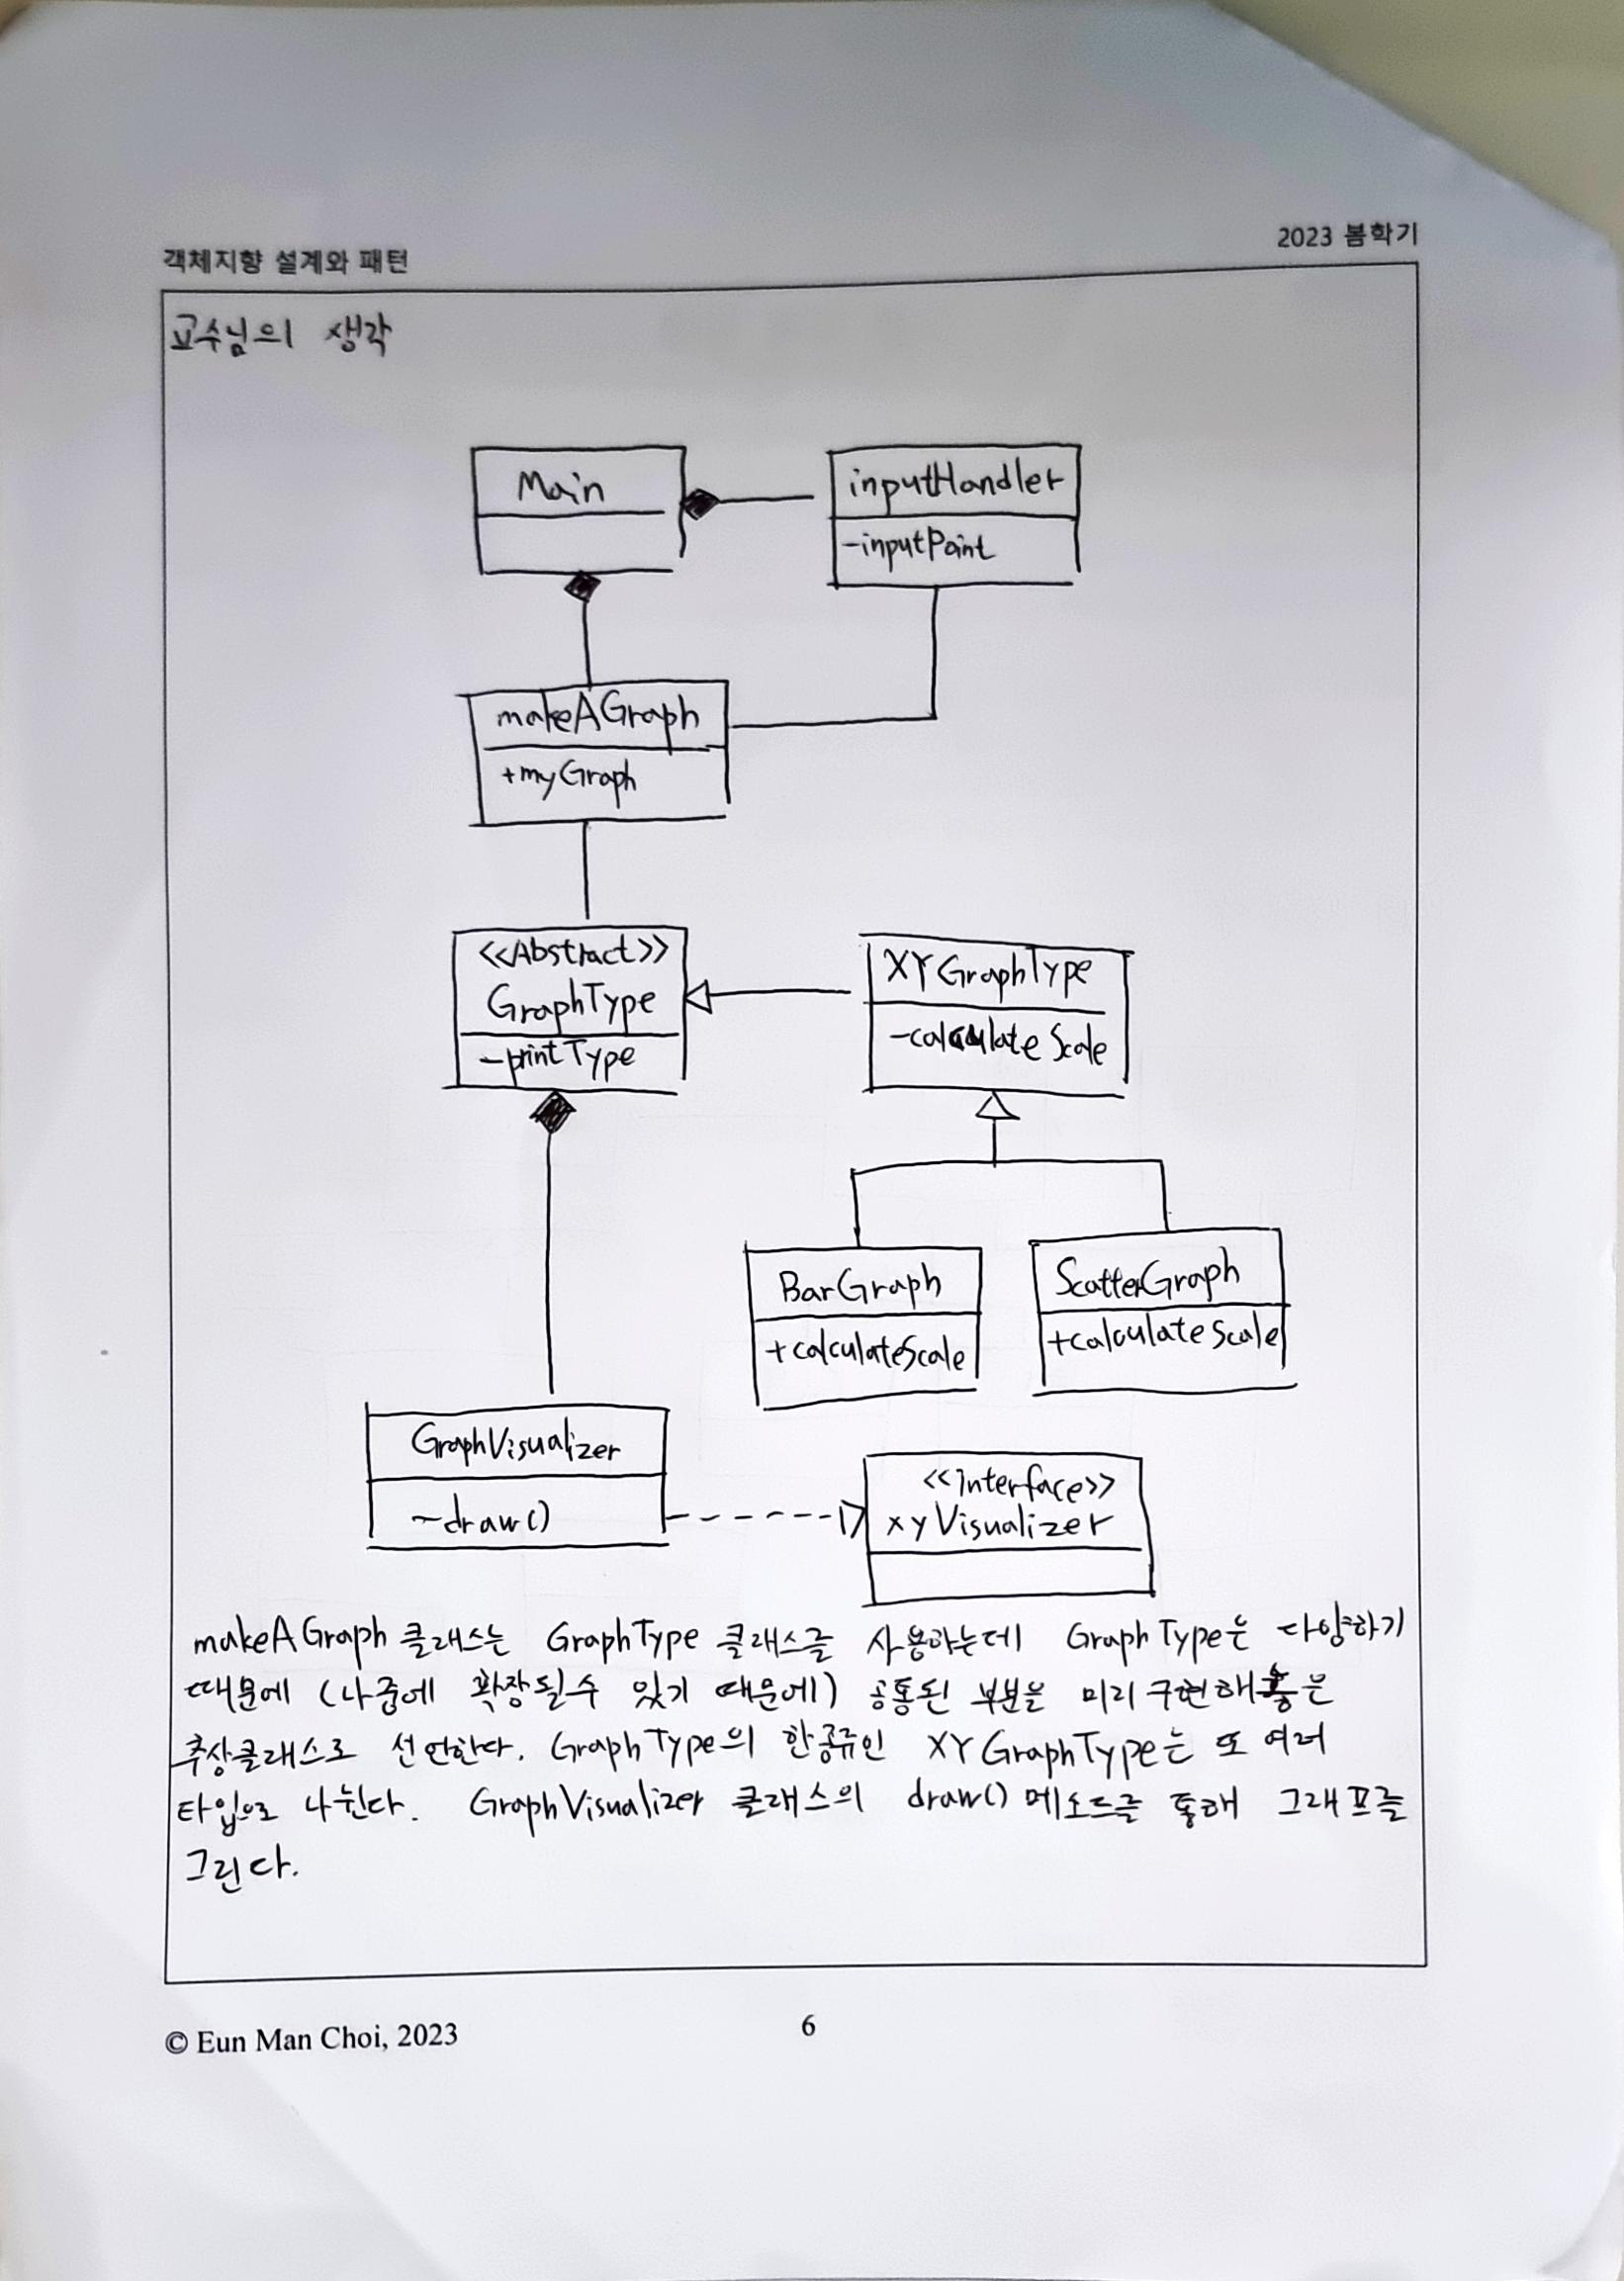 객체지향 설계와 패턴
2023 봄학기
교수님의 생각
Main
inputHandler
-inputPoint
makeAGraph
+myGraph
<<Abstract>>
GraphType
-printType
XYGraphType
-calculateScale
BarGraph
+calculateScale
ScatterGraph
+calculateScale
GraphVisualizer
~draw()
<<interface>>
xyVisualizer
makeAGraph 클래스는 GraphType 클래스를 사용하는데 GraphType은 다양하기
때문에 (나중에 확장될수 있기 때문에) 공통된 부분을 미리 구현해놓은
추상클래스로 선언한다. GraphType의 한종류인 XYGraphType는 또 여러
타입으로 나뉜다. GraphVisualizer 클래스의 draw() 메소드를 통해 그래프를
그린다.
© Eun Man Choi, 2023
6